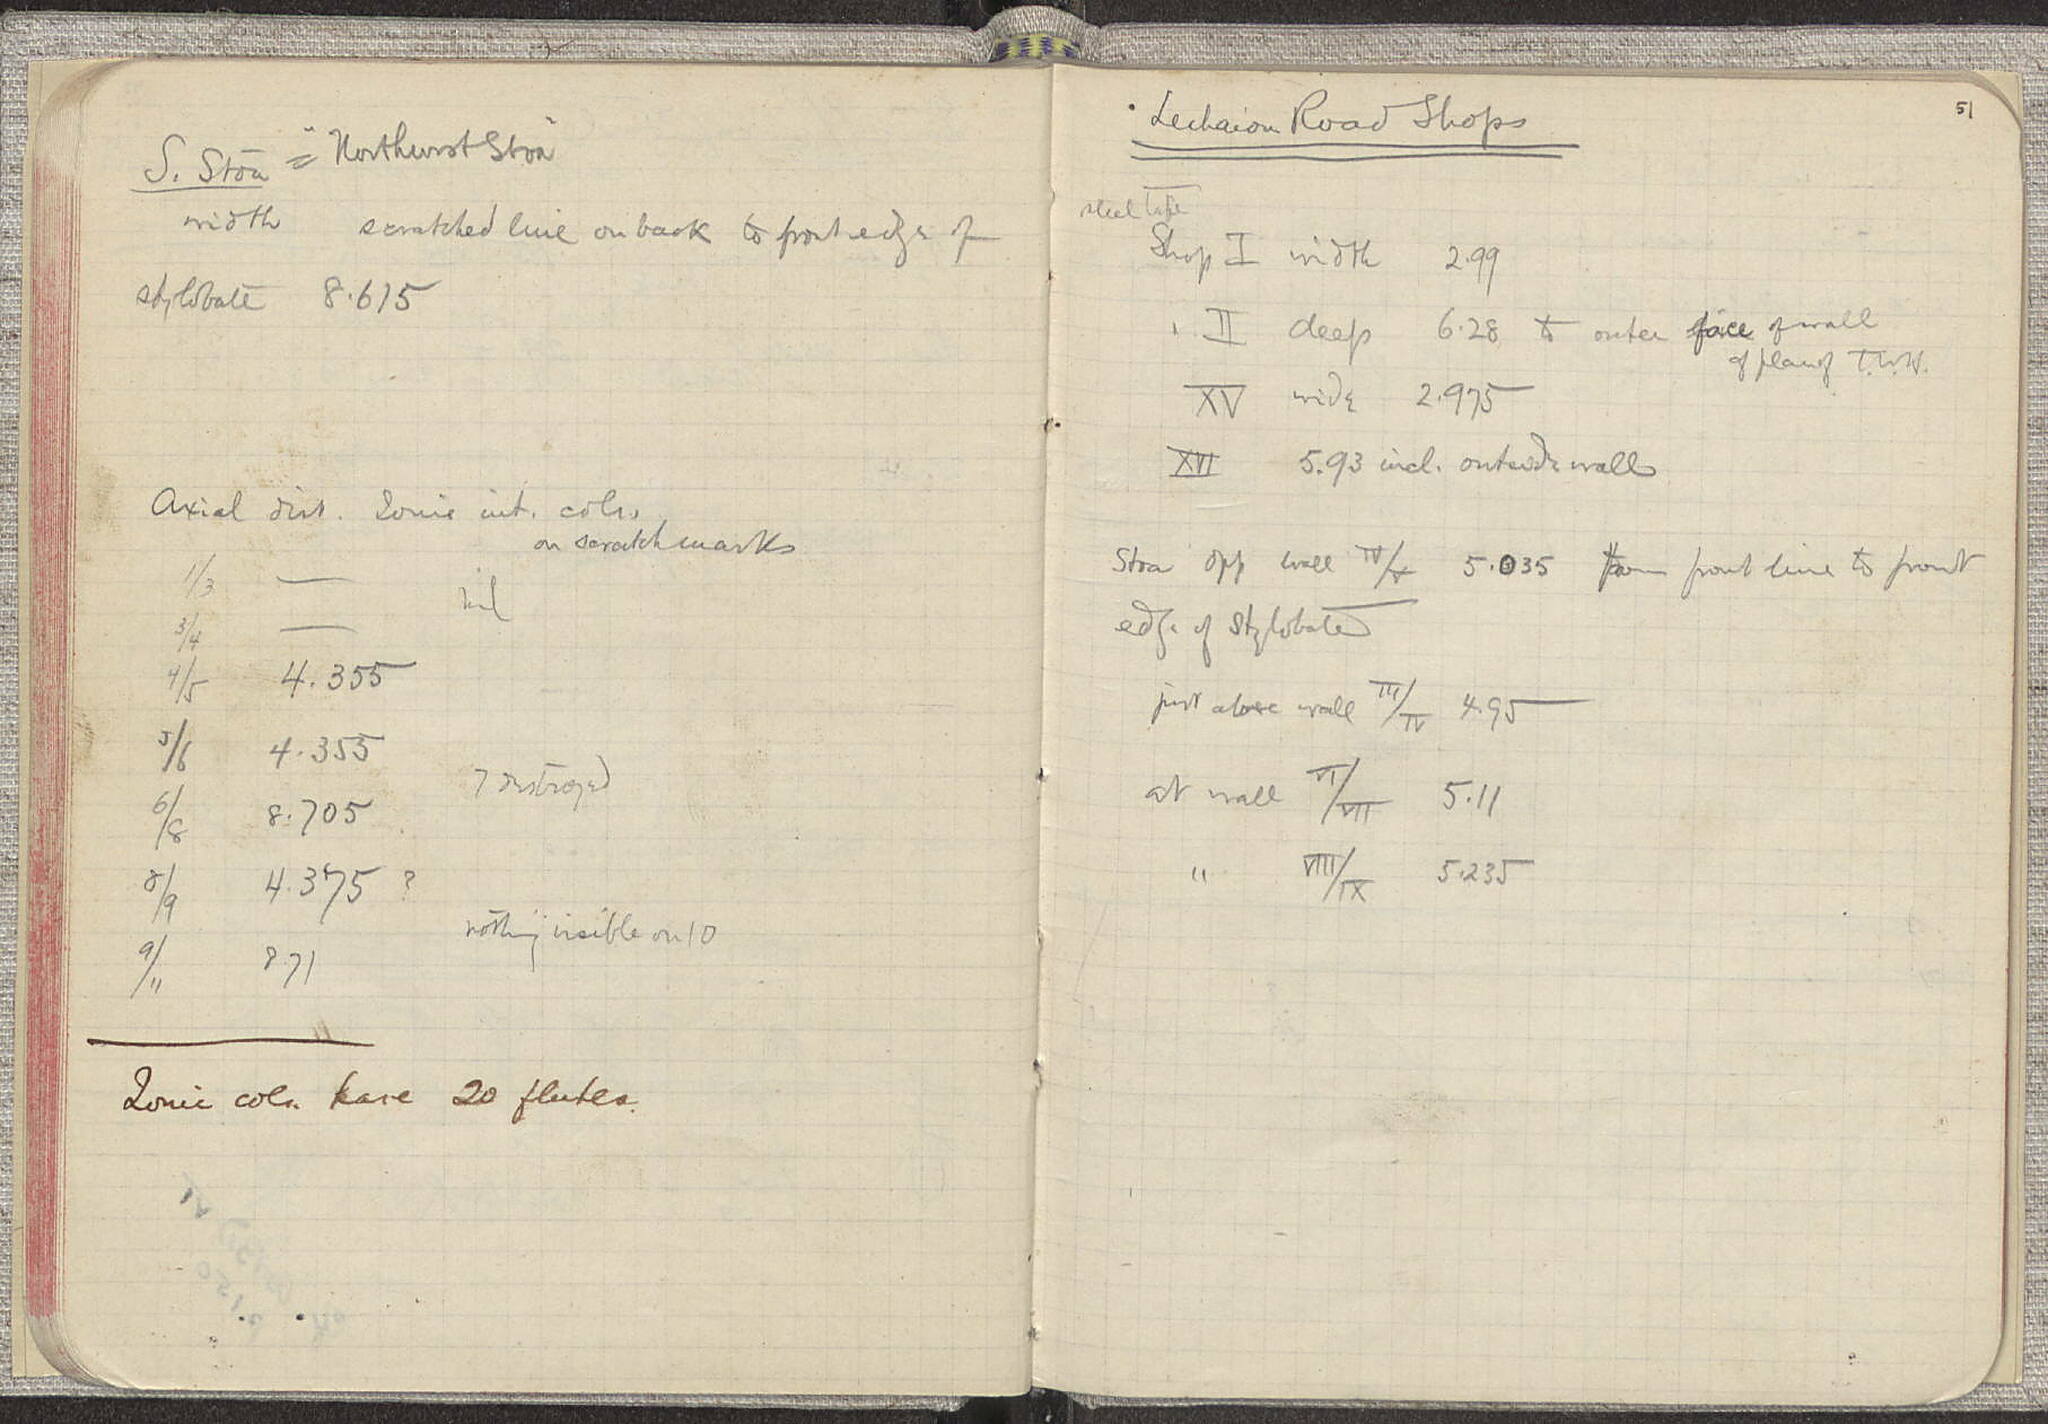 S. Stoa = "Northwest Stoa"
width scratched line on back to front edge of
stylobate 8.615
Axial dist. Ionic int. cols.
on scratch marks
1/3 —
nil
3/4 —
4/5 4.355
5/6 4.355
7 destroyed
6/8 8.705
8/9 4.375 ?
nothing visible on 10
9/11 8.71
Ionic cols. have 20 flutes.
51
Lechaion Road Shops
steel tape
Shop I width 2.99
" II deep 6.28 to outer face of wall
of plan of
XV wide 2.975
XVI 5.93 incl. outside walls
Stoa opp wall IV/V 5.035 from front line to front
edge of stylobate
just above wall III/IV 4.95
at wall VI/VII 5.11
" VIII/IX 5.235